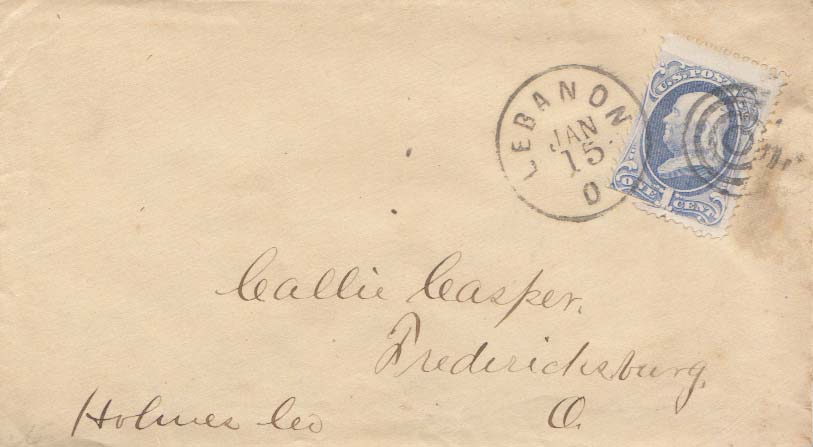 LEBANON
JAN
15
O
U.S. POS
ONE 1 CENT
Callie Casper.
Fredericksburg,
Holmes Co O.